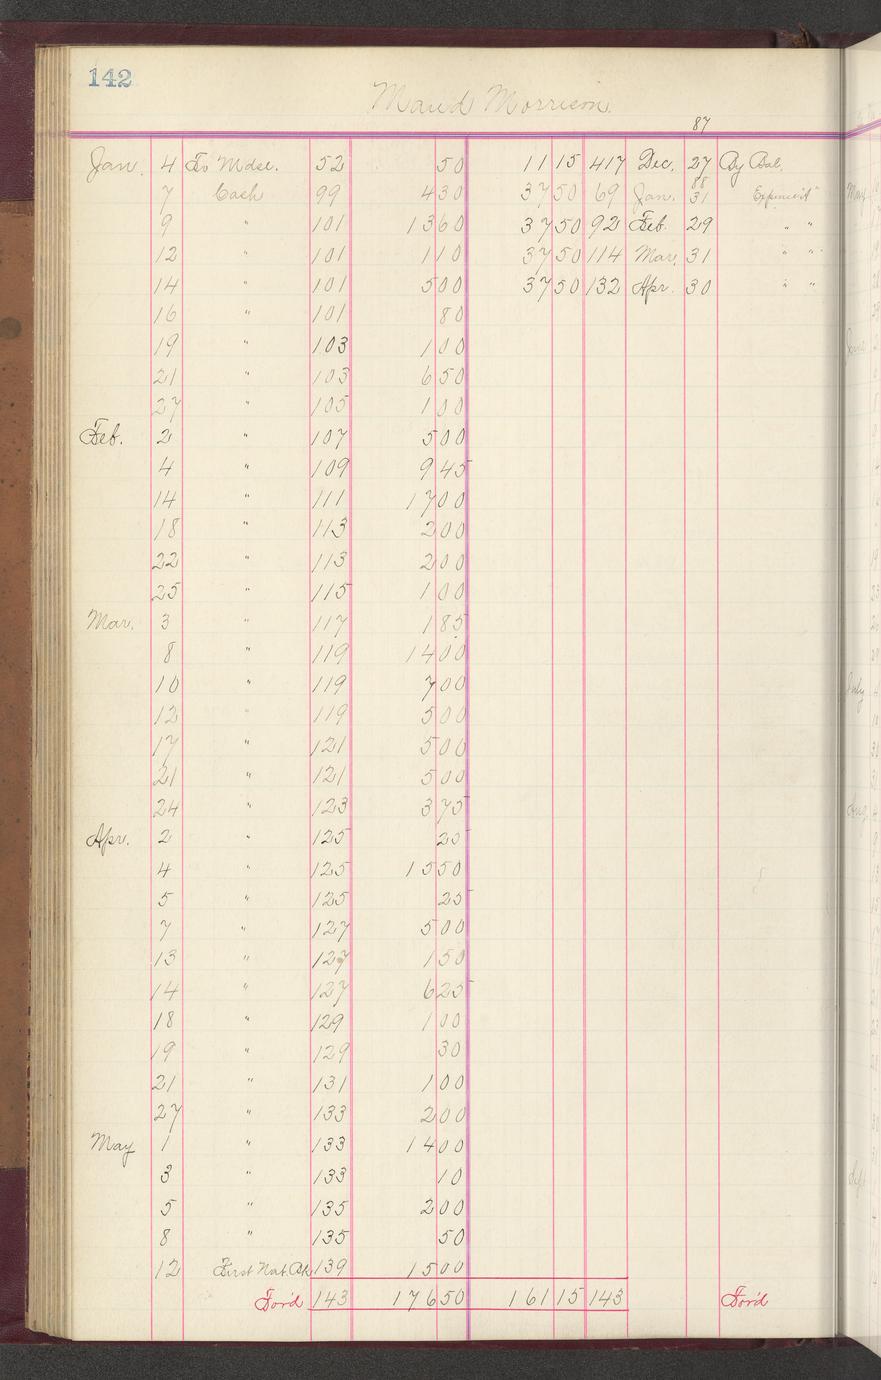 142
Maud Morrison
87
Jan. 4 To Mdse. 52 50 11 15 417 Dec. 27 By Bal.
7 Cash 99 4 30 37 50 69 Jan. 88 31 Expense a/c
9 " 101 13 60 37 50 92 Feb. 29 " "
12 " 101 1 10 37 50 114 Mar. 31 " "
14 " 101 5 00 37 50 132 Apr. 30 " "
16 " 101 80
19 " 103 1 00
21 " 103 6 50
27 " 105 1 00
Feb. 2 " 107 5 00
4 " 109 9 45
14 " 111 17 00
18 " 113 2 00
22 " 113 2 00
25 " 115 1 00
Mar. 3 " 117 1 85
8 " 119 14 00
10 " 119 7 00
12 " 119 5 00
17 " 121 5 00
21 " 121 5 00
24 " 123 3 75
Apr. 2 " 125 25
4 " 125 15 50
5 " 125 25
7 " 127 5 00
13 " 127 1 50
14 " 127 6 25
18 " 129 1 00
19 " 129 30
21 " 131 1 00
27 " 133 2 00
May 1 " 133 14 00
3 " 133 10
5 " 135 2 00
8 " 135 50
12 First Nat. Bk 139 15 00
For'd 143 176 50 161 15 143 For'd